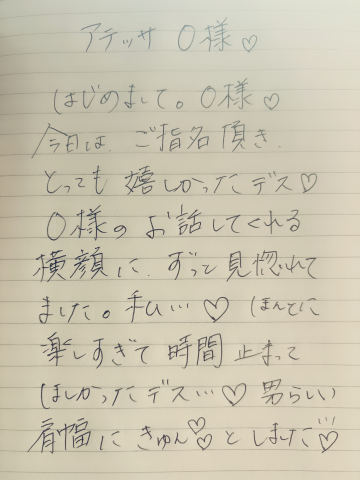 アテッサ O様♡
はじめまして。O様♡
今日は、ご指名頂き、
とっても嬉しかったデス♡
O様のお話してくれる
横顔に、ずっと見惚れて
ました。私…♡ ほんとに
楽しすぎて時間止まって
ほしかったデス…♡ 男らしい
肩幅にきゅん♡♡としました♡